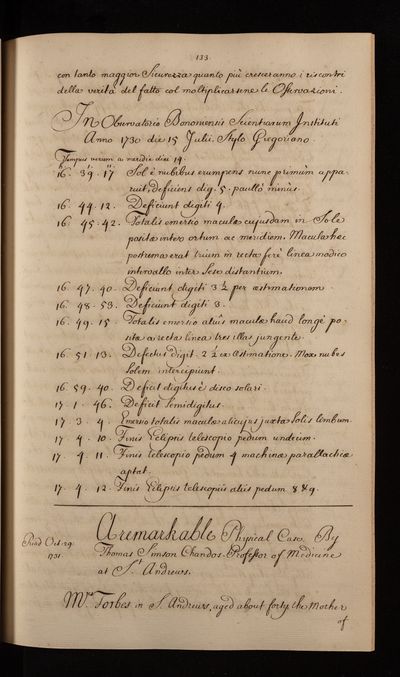 133
con tanto maggior Sicurezza quanto più cresceranno i riscontri
della verità del fatto col moltiplicarsene le Osservazioni.
In Observatorio Bononiensis Scientiarum Instituti
Anno 1730 die 15 Julii. Stylo Gregoriano.
Tempus verum a meridie diei 14.
16. 39. 17 Sol è nubibus erumpens nunc primùm appa
ruit, deficiens dig. 5. paullò minùs.
16. 44. 12. Deficiunt digiti 4.
16. 45. 42. Totalis emersio maculæ cujusdam in Sole
positæ inter ortum ac meridiem. Macula hæc
postrema erat trium in recta ferè linea modico
intervallo inter Sese distantium.
16. 47. 40. Deficiunt digiti 3 ½ per æstimationem.
16. 48. 53. Deficiunt digiti 3.
16. 49. 15. Totalis emersio alius maculæ haud longè po-
sitæ a recta linea tres illas jungente.
16. 51. 13. Defectus digit. 2 ½ ex æstimatione. Mox nubes
Solem intercipiunt.
16. 59. 40. Deficit digitus è disco solari.
17. 1. 46. Deficit Semidigitus.
17. 3. 4. Emersio totalis maculæ alicujus juxta Solis limbum.
17. 4. 10. Finis Eclipsis telescopio pedum undecim.
17. 4. 11. Finis telescopio pedum 4 machinæ parallacticæ
aptat.
17. 4. 12. Finis Eclipsis telescopiis aliis pedum 8 & 9.
Read Oct. 29
1731.
A remarkable Physical Case. By
Thomas Simson Chandos-Professor of Medicine
at St. Andrews.
Mrs. Forbes in S. Andrews, aged about forty, the Mother
of